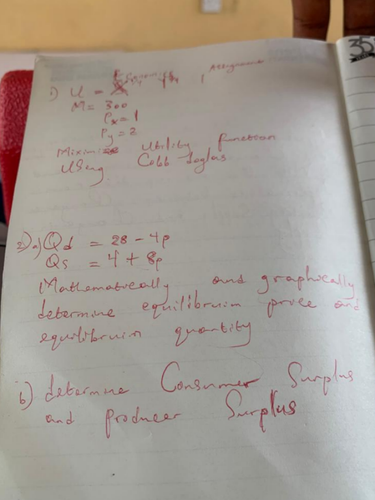 Assignment
1) U =
M = 300
Px = 1
Py = 2
Utility function
Using Cobb
2) a) Qd = 28 - 4p
Qs = 4 + 8p
Mathematically and graphically
determine equilibruim price and
equilibruim quantity
b) determine Consumer Surplus
and producer Surplus
35